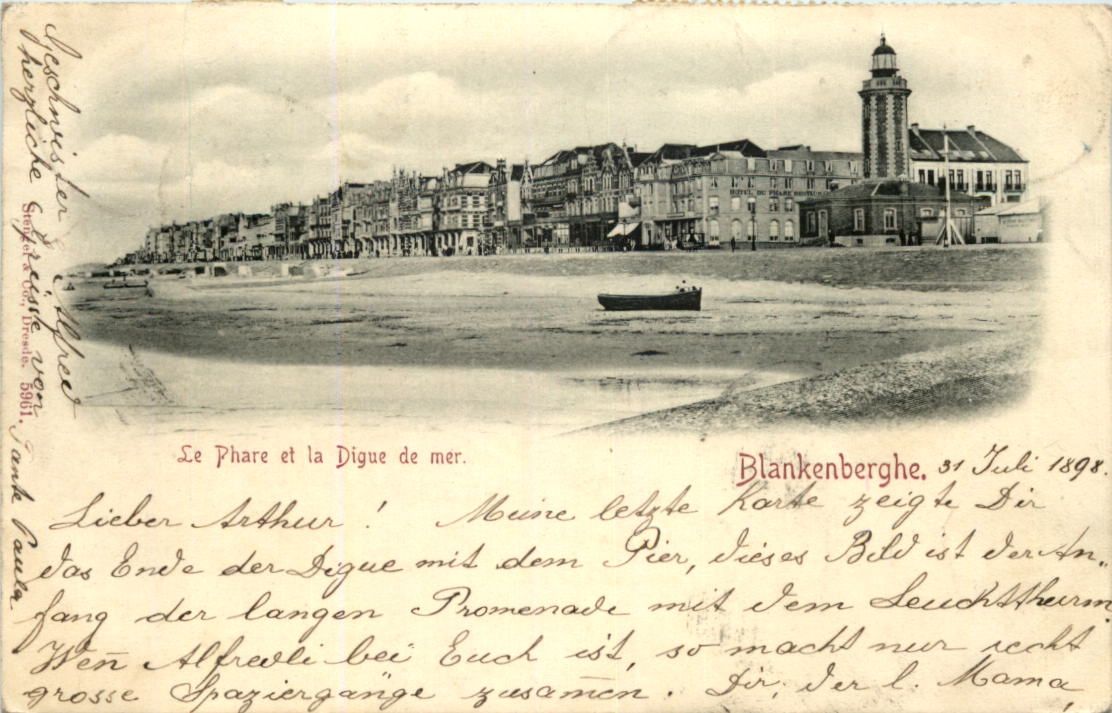 HOTEL DU PHARE
Le Phare et la Digue de mer.
Blankenberghe. 31 Juli 1898.
Lieber Arthur! Meine letzte Karte zeigte Dir
das Ende der Digue mit dem Pier, dieses Bild ist der An„
fang der langen Promenade mit dem Leuchtthurm
Wen̅ Alfredli bei Euch ist, so macht nur recht
grosse Spaziergänge zusam̅en. Dir, der l. Mama,
Geschwister & Alfred
herzliche Grüsse von
Tante Paula.
Stengel & Co., Dresde. 5961.